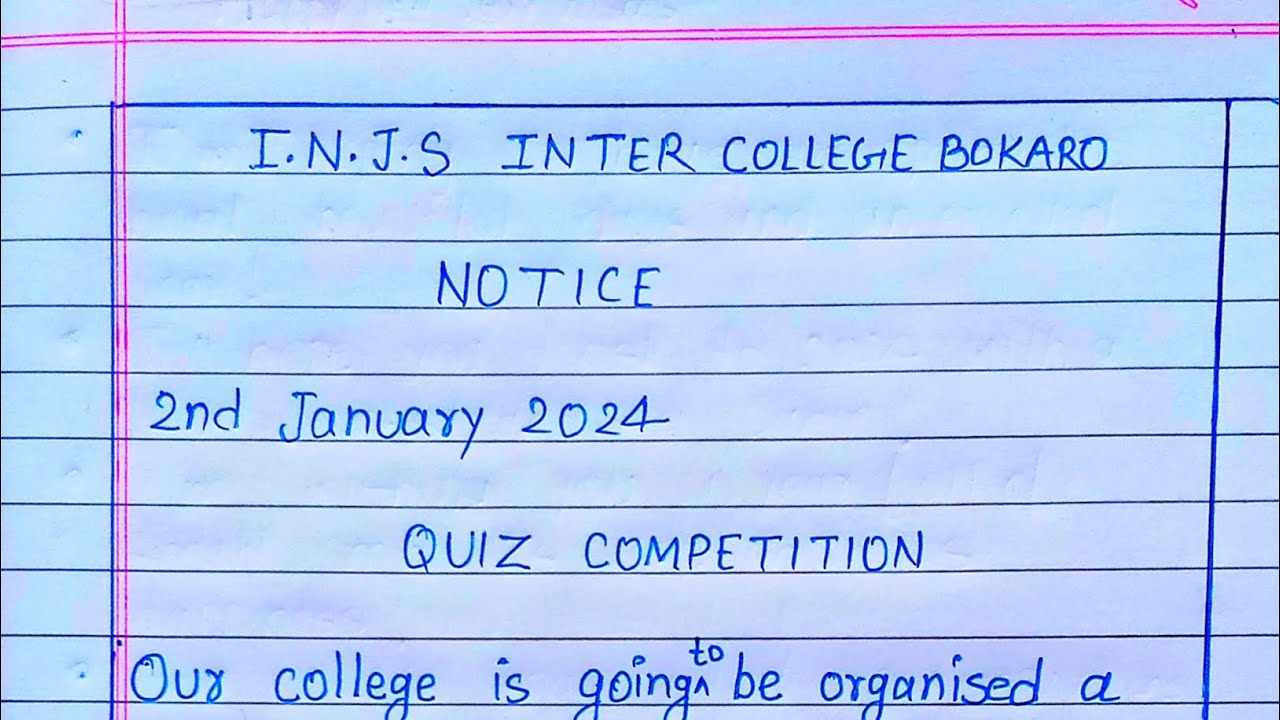 I.N.J.S INTER COLLEGE BOKARO
NOTICE
2nd January 2024
QUIZ COMPETITION
Our college is going to be organised a